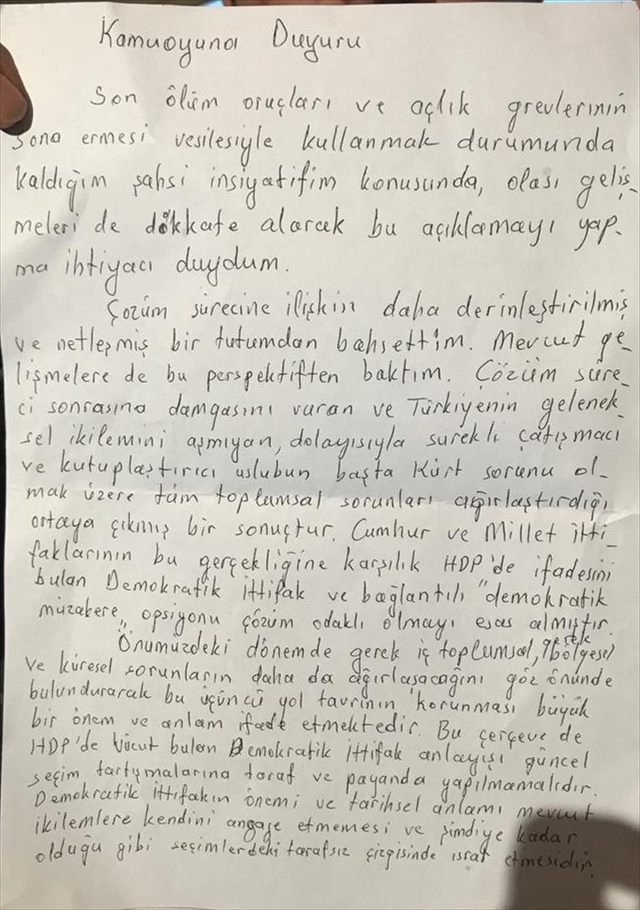 Kamuoyuna Duyuru
Son ölüm oruçları ve açlık grevlerinin
sona ermesi vesilesiyle kullanmak durumunda
kaldığım şahsi insiyatifim konusunda, olası geliş-
meleri de dikkate alarak bu açıklamayı yap-
ma ihtiyacı duydum.
Çözüm sürecine ilişkin daha derinleştirilmiş
ve netleşmiş bir tutumdan bahsettim. Mevcut ge-
lişmelere de bu perspektiften baktım. Çözüm süre-
ci sonrasına damgasını vuran ve Türkiyenin gelenek-
sel ikilemini aşmıyan, dolayısıyla sürekli çatışmacı
ve kutuplaştırıcı uslubun başta Kürt sorunu ol-
mak üzere tüm toplumsal sorunları ağırlaştırdığı
ortaya çıkmış bir sonuçtur. Cumhur ve Millet itti-
faklarının bu gerçekliğine karşılık HDP'de ifadesini
bulan Demokratik ittifak ve bağlantılı "demokratik
müzakere" opsiyonu çözüm odaklı olmayı esas almıştır.
Önümüzdeki dönemde gerek iç toplumsal, gerek bölgesel
ve küresel sorunların daha da ağırlaşacağını göz önünde
bulundurarak bu üçüncü yol tavrının korunması büyük
bir önem ve anlam ifade etmektedir. Bu çerçevede
HDP'de Vücut bulan Demokratik ittifak anlayışı güncel
seçim tartışmalarına taraf ve payanda yapılmamalıdır.
Demokratik ittifakın önemi ve tarihsel anlamı mevcut
ikilemlere kendini angaje etmemesi ve şimdiye kadar
olduğu gibi seçimlerdeki tarafsız çizgisinde ısrar etmesidir.